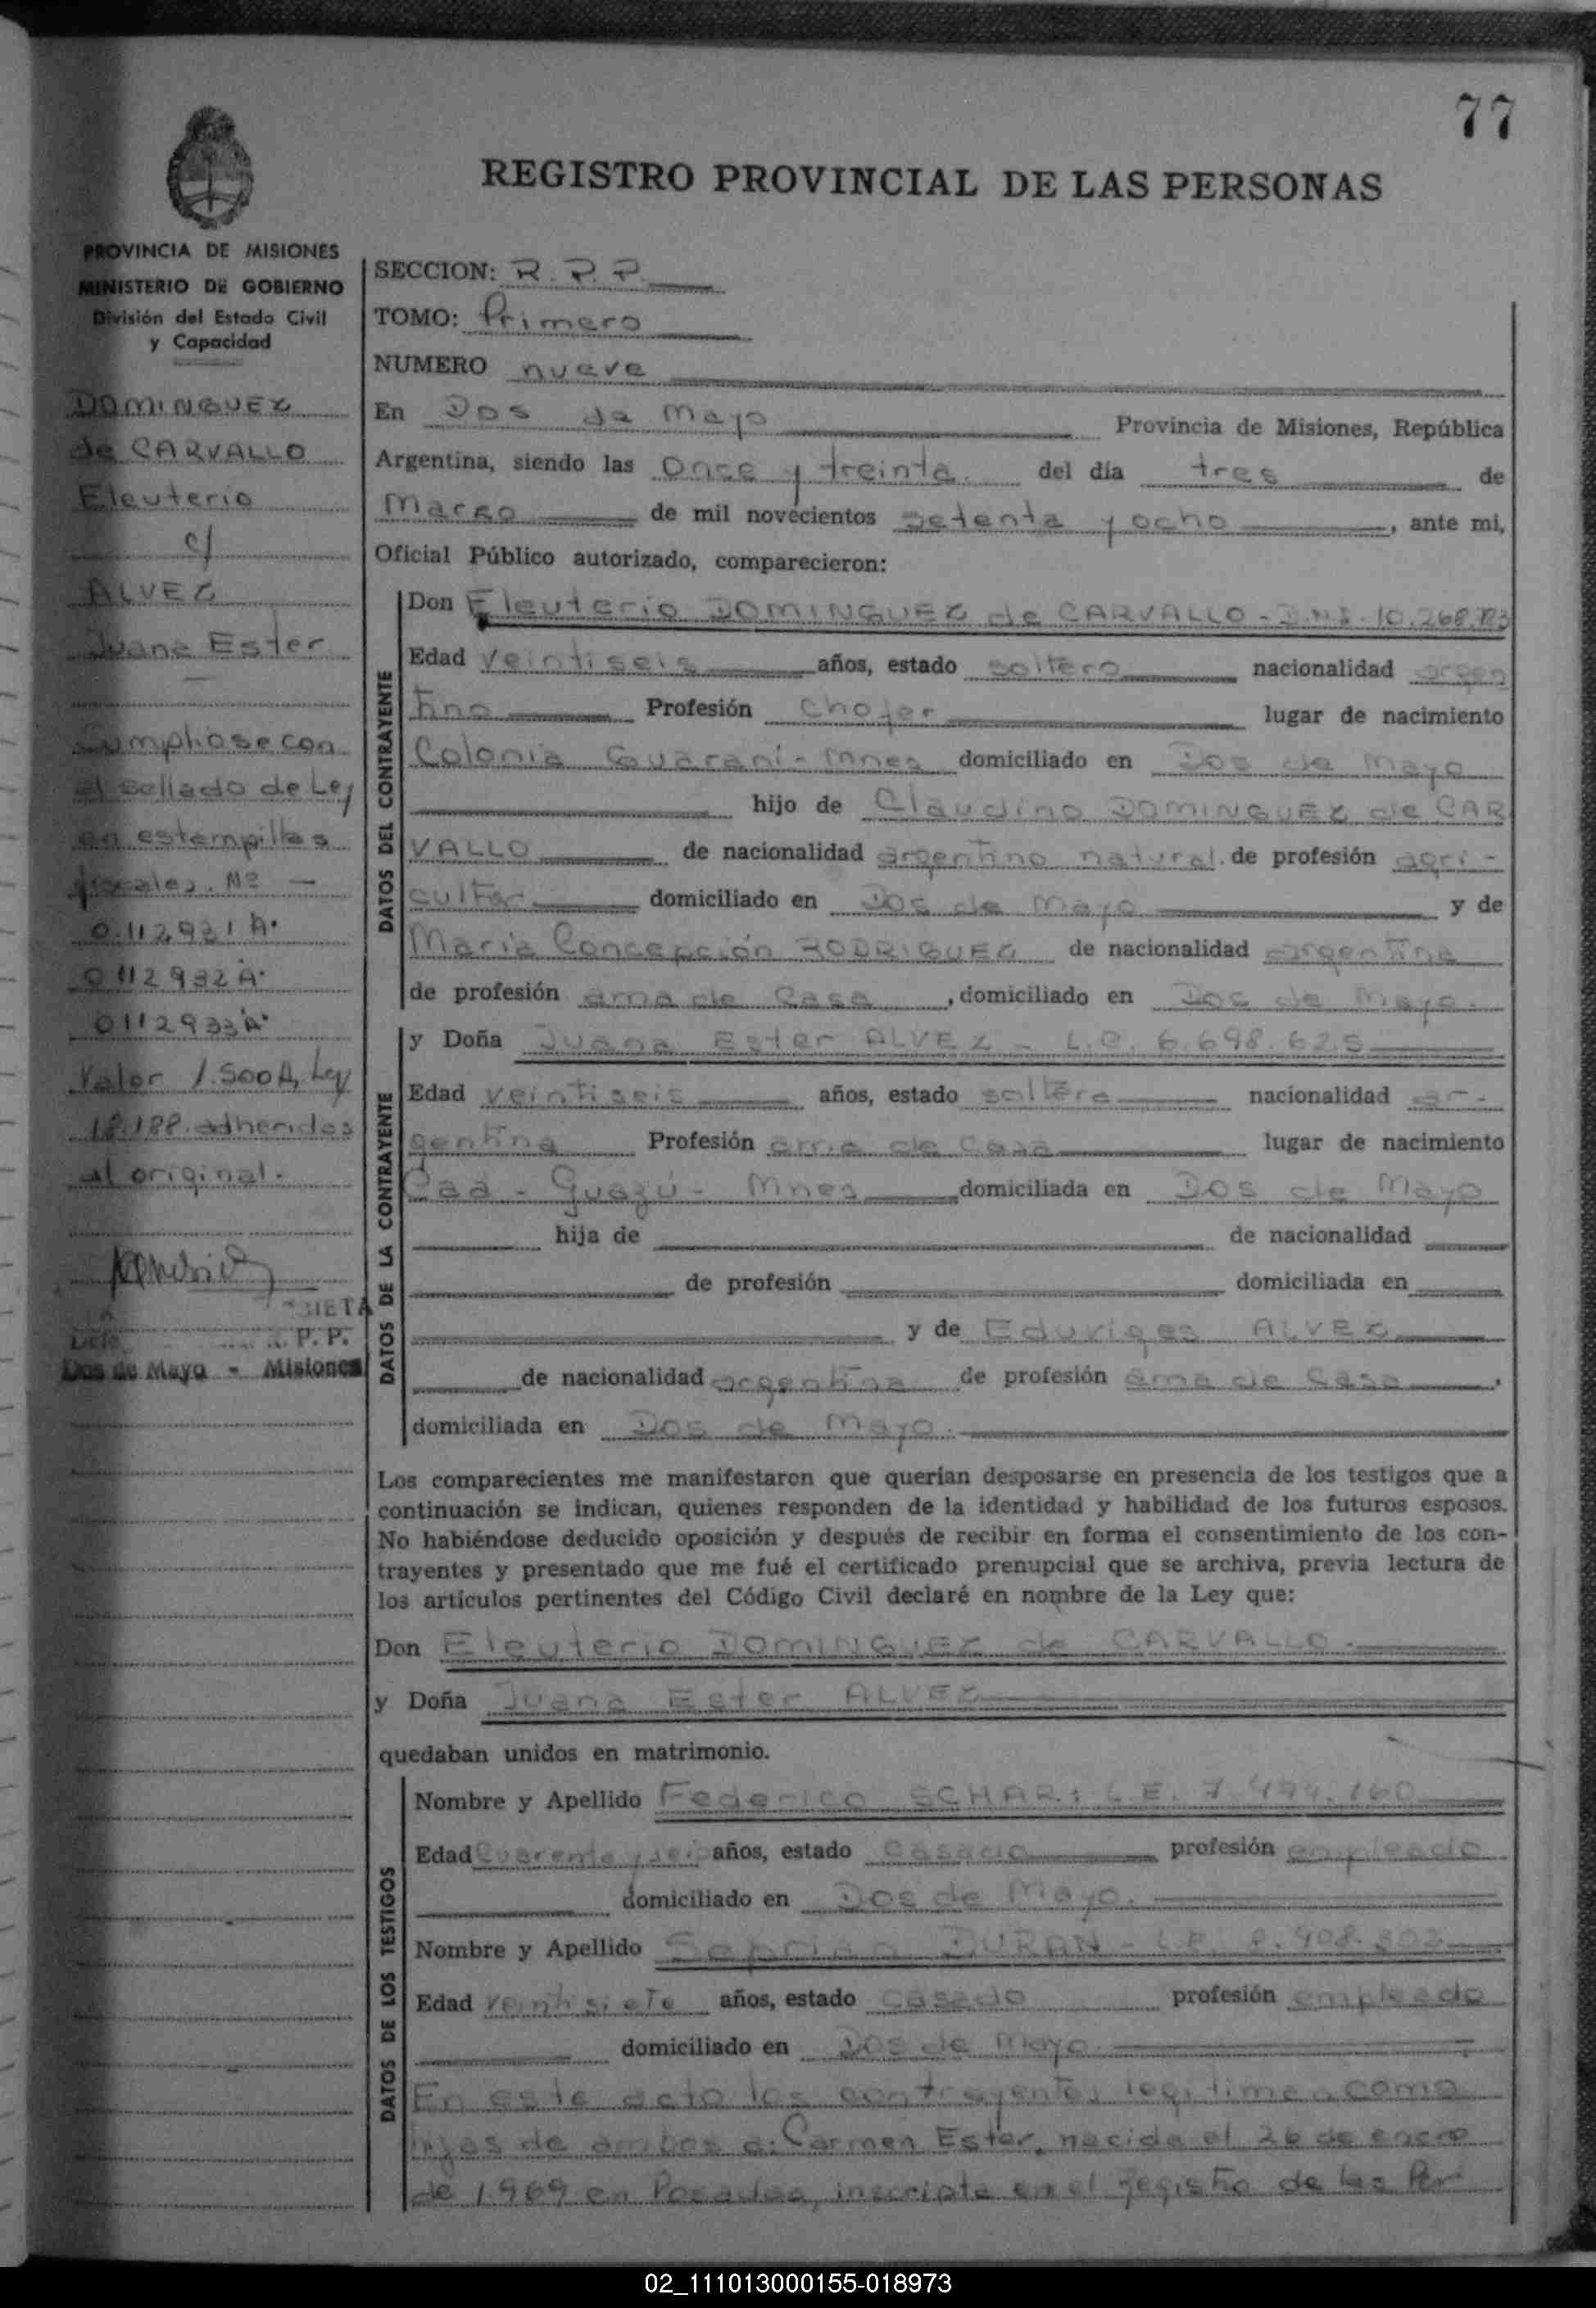 77
REGISTRO PROVINCIAL DE LAS PERSONAS
PROVINCIA DE MISIONES
MINISTERIO DE GOBIERNO
División del Estado Civil
y Capacidad
DOMINGUEZ
de CARVALLO
Eleuterio
c/
ALVEZ
Juana Ester
Cumplióse con
el sellado de Ley
en estampillas
fiscales. Nº —
0.112931 A.
0112932 A.
0112933 A.
Valor 1.500 Ley
18.188. adheridas
al original.
P. P.
Dos de Mayo - Misiones
SECCION: R. P. P.
TOMO: Primero
NUMERO nueve
En Dos de Mayo Provincia de Misiones, República
Argentina, siendo las once y treinta. del día tres de
Marzo de mil novecientos setenta y ocho, ante mi,
Oficial Público autorizado, comparecieron:
DATOS DEL CONTRAYENTE
Don Eleuterio DOMINGUEZ de CARVALLO - D.N.I. 10.268.
Edad veintiseis años, estado soltero nacionalidad argen
tino Profesión chofer lugar de nacimiento
Colonia Guaraní - Mnes domiciliado en Dos de Mayo
hijo de Claudino DOMINGUEZ de CAR
VALLO de nacionalidad argentino natural. de profesión agri-
cultor domiciliado en Dos de Mayo y de
María Concepción RODRIGUEZ de nacionalidad argentina
de profesión ama de casa, domiciliado en Dos de Mayo.
DATOS DE LA CONTRAYENTE
y Doña Juana Ester ALVEZ - L.C. 6.698.625
Edad veintiseis años, estado soltera nacionalidad ar-
gentina Profesión ama de casa lugar de nacimiento
Caá - Guazú - Mnes domiciliada en Dos de Mayo
hija de de nacionalidad
de profesión domiciliada en
y de Eduviges ALVEZ
de nacionalidad argentina de profesión ama de casa,
domiciliada en Dos de Mayo.
Los comparecientes me manifestaron que querían desposarse en presencia de los testigos que a
continuación se indican, quienes responden de la identidad y habilidad de los futuros esposos.
No habiéndose deducido oposición y después de recibir en forma el consentimiento de los con-
trayentes y presentado que me fué el certificado prenupcial que se archiva, previa lectura de
los artículos pertinentes del Código Civil declaré en nombre de la Ley que:
Don Eleuterio DOMINGUEZ de CARVALLO.
y Doña Juana Ester ALVEZ
quedaban unidos en matrimonio.
DATOS DE LOS TESTIGOS
Nombre y Apellido Federico SCHAR: L.E. 7.494.160
Edad cuarenta y seis años, estado casado profesión empleado
domiciliado en Dos de Mayo.
Nombre y Apellido DURAN - L.E. 8.408.302
Edad veintisiete años, estado casado profesión empleado
domiciliado en Dos de Mayo.
En este acto los contrayentes legitiman como
hijos de ambos a: Carmen Ester, nacida el 26 de enero
de 1.969 en Posadas, inscripta en el Registro de las Per
02_111013000155-018973